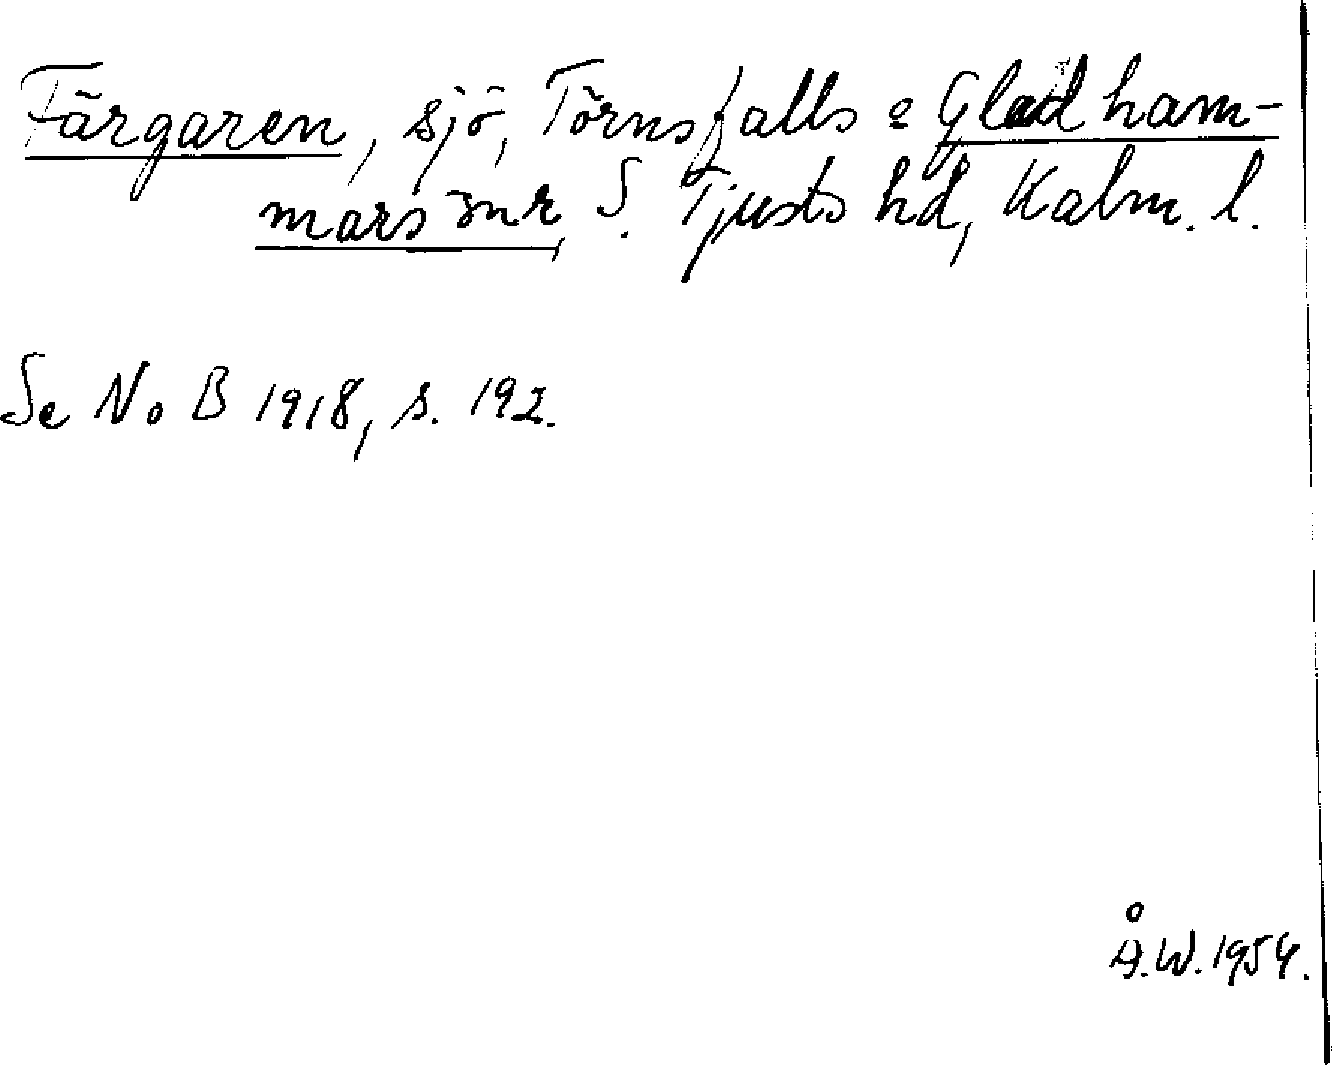 Färgaren, sjö, Törnsfalls o Gladham-
mars snr, S. Tjusts hd, Kalm. l.
Se NoB 1918, s. 192.
Å.W. 1954.